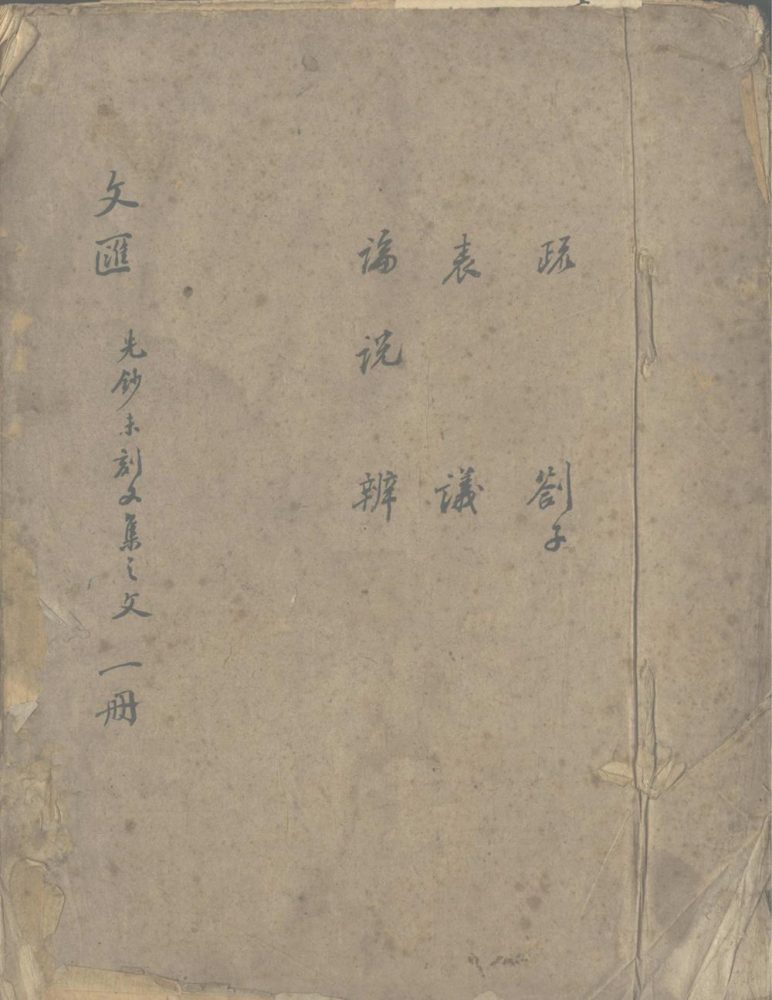 疏 劄子
表 議
論 说 辨
文匯 先鈔未刻文集之文 一冊